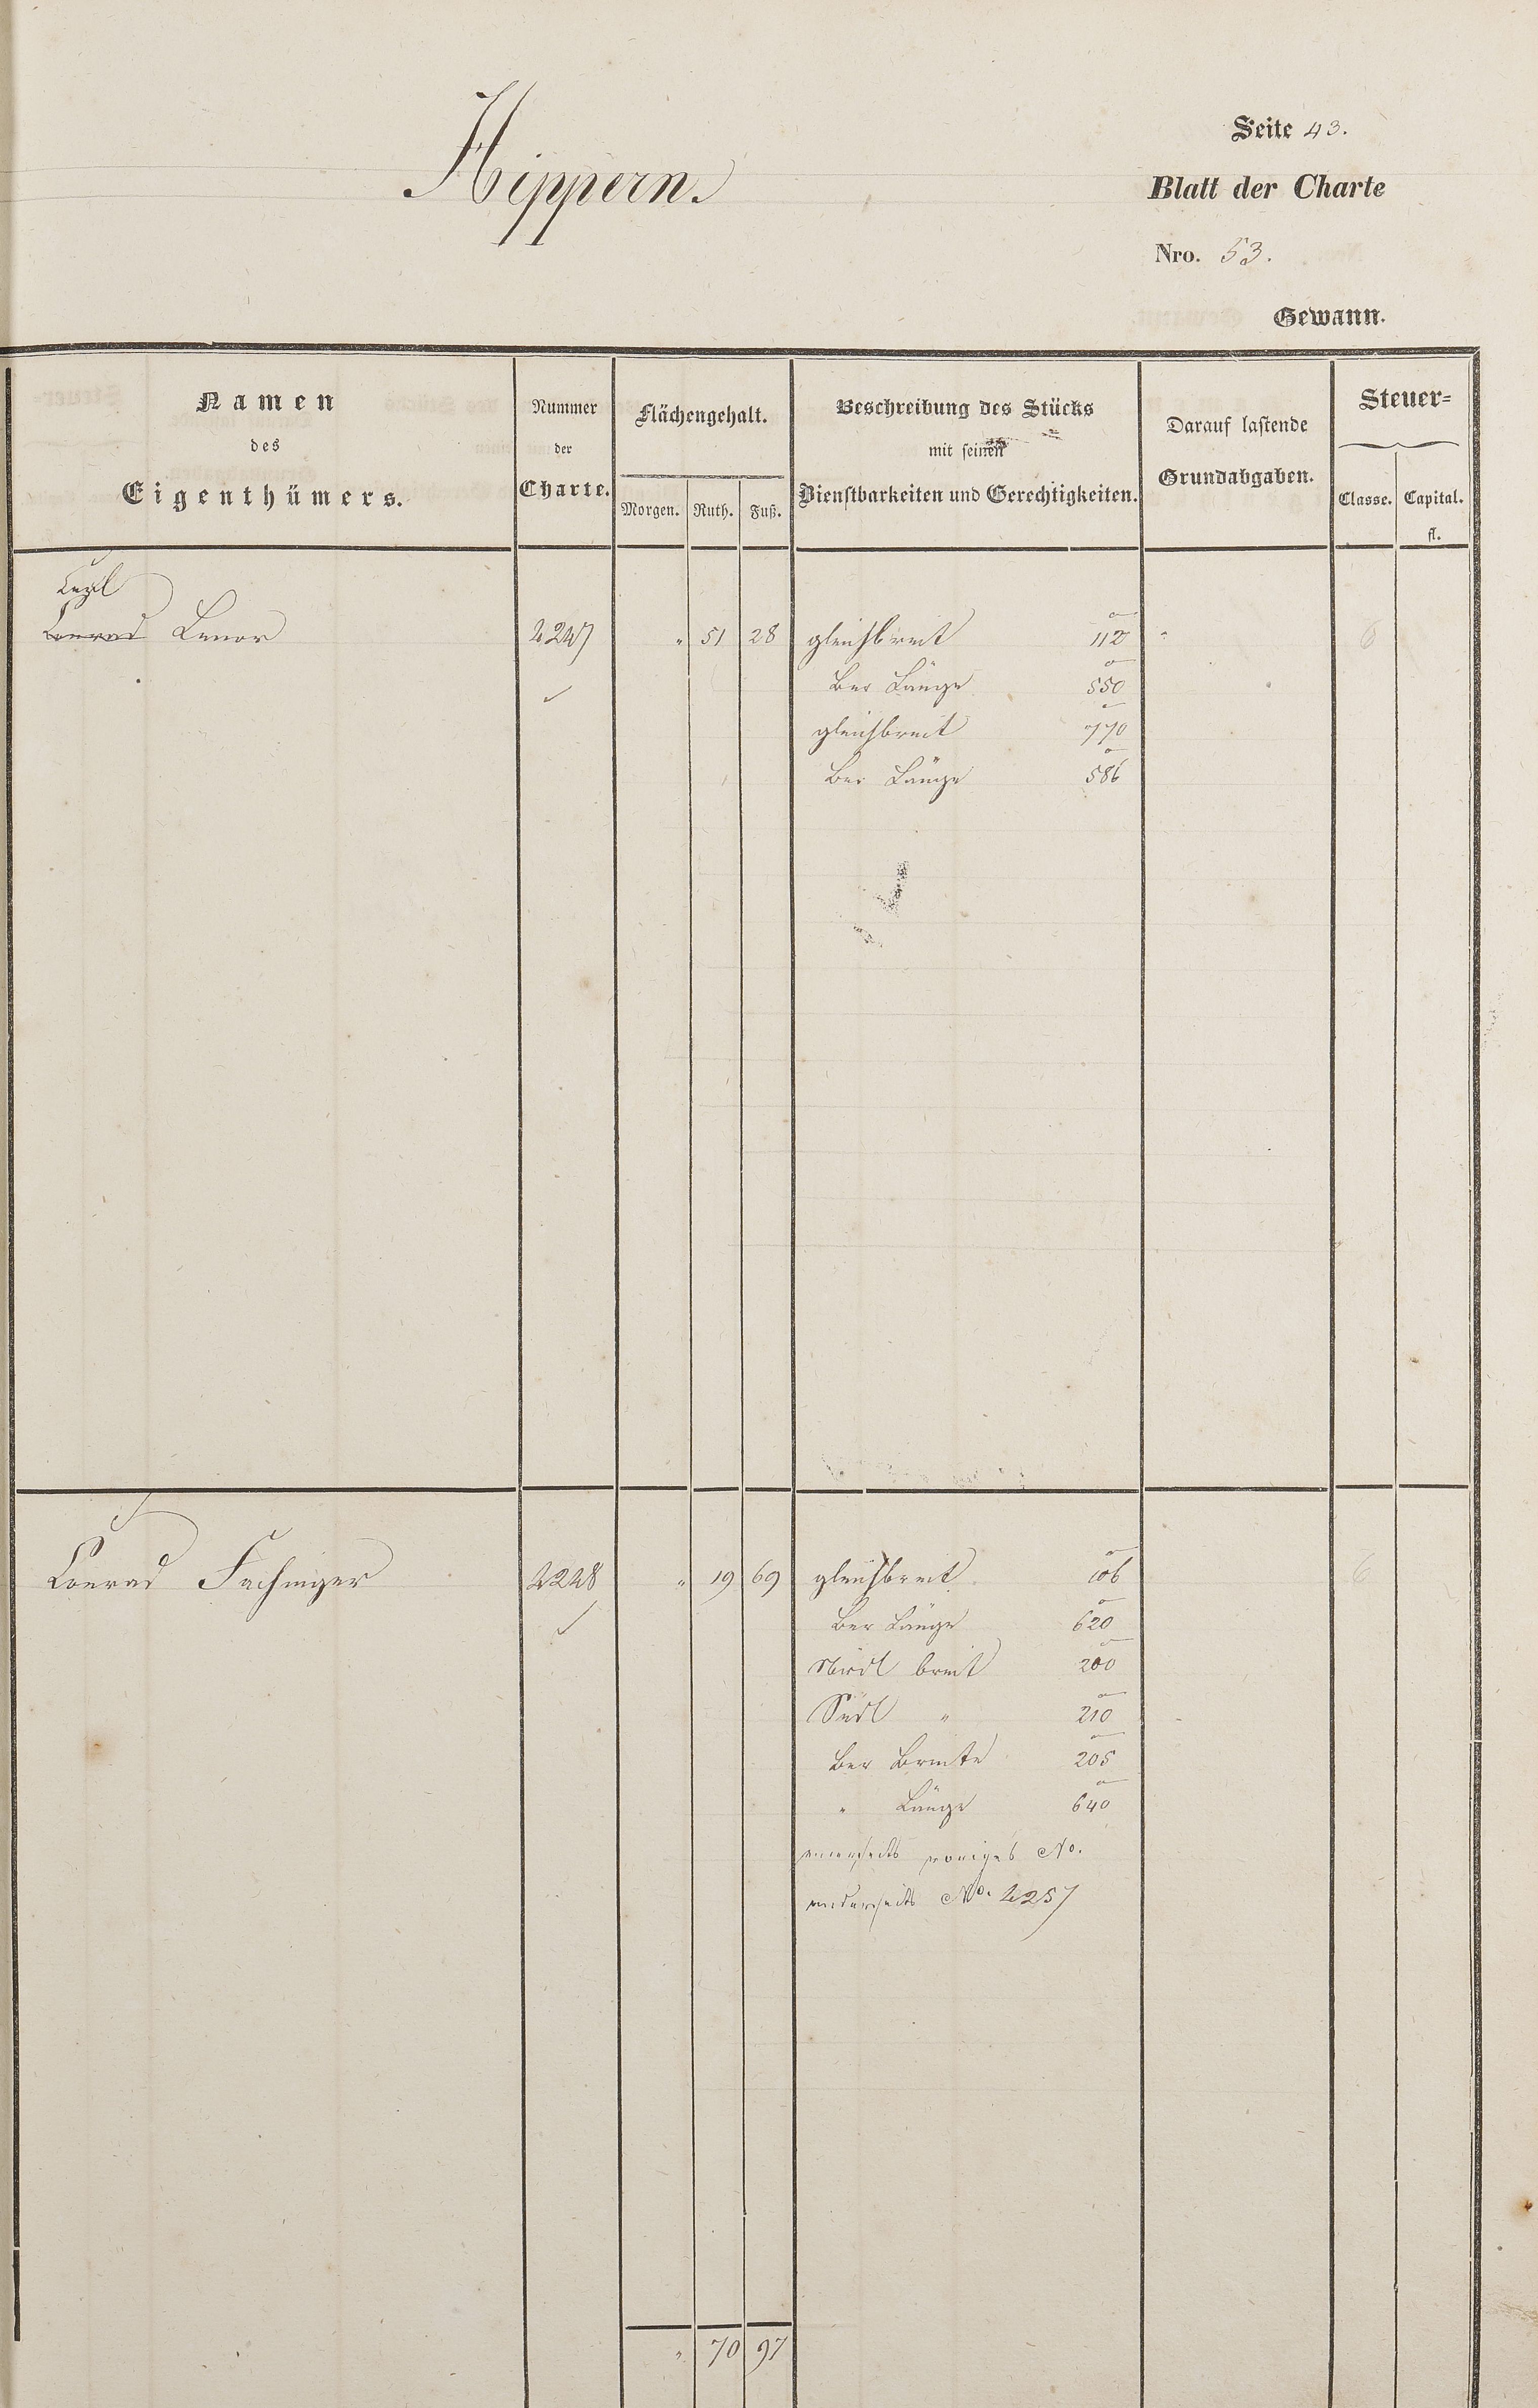 Hippern.
Seite 43.
Blatt der Charte
Nro. 53.
Gewann.
Namen
des
Eigenthümers.
Nummer
der
Charte.
Flächengehalt.
Morgen. Ruth. Fuß.
Beschreibung des Stücks
mit seinen
Dienstbarkeiten und Gerechtigkeiten.
Darauf lastende
Grundabgaben.
Steuer=
Classe. Capital.
fl.
Conrad 4247 " 51 28 gleichbreit 112 " 6
Ber Länge 550
gleichbreit 770
Ber Länge 586
Conrad Fachinger 4248 " 19 69 gleichbreit 106 6
Ber Länge 620
Nördl breit 200
Südl " 210
Ber Breite 205
" Länge 640
einerseits voriges No.
anderseits No. 4257
" 70 97